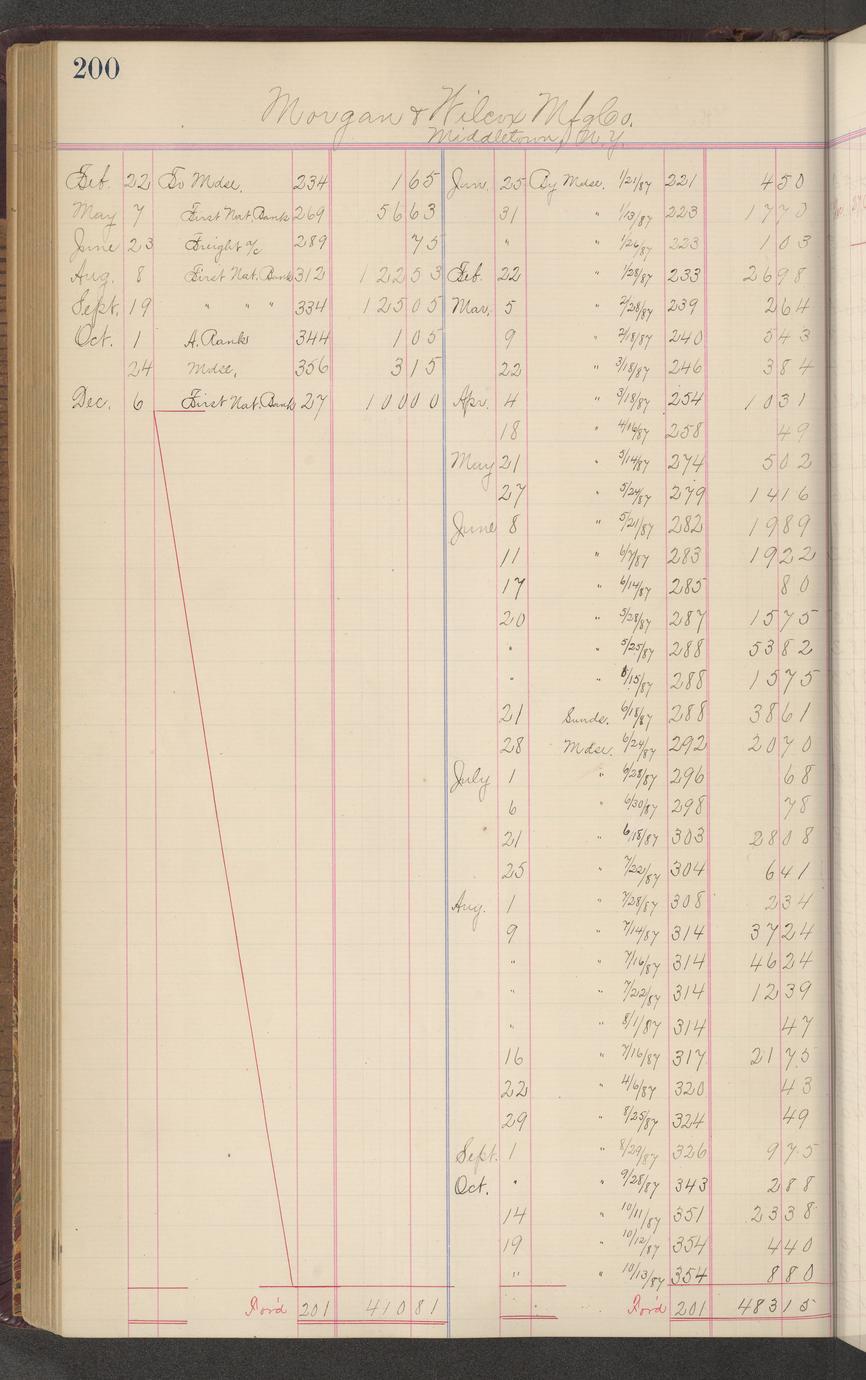 200
Morgan & Wilcox Mfg Co.
Middletown, N.Y.
Feb. 22 To Mdse. 234 1 65
May 7 First Nat. Bank 269 56 63
June 23 Freight a/c 289 75
Aug. 8 First Nat. Bank 312 122 53
Sept. 19 " " " 334 125 05
Oct. 1 A. Ranks 344 1 05
24 Mdse. 356 3 15
Dec. 6 First Nat. Bank 27 100 00
For'd 201 410 81
Jan. 25 By Mdse. 1/21/87 221 4 50
31 " 1/13/87 223 17 70
" " 1/26/87 223 1 03
Feb. 22 " 1/28/87 233 26 98
Mar. 5 " 2/28/87 239 2 64
9 " 2/18/87 240 5 43
22 " 3/18/87 246 3 84
Apr. 4 " 3/18/87 254 10 31
18 " 4/16/87 258 49
May 21 " 5/14/87 274 5 02
27 " 5/24/87 279 14 16
June 8 " 5/21/87 282 19 89
11 " 6/7/87 283 19 22
17 " 6/14/87 285 80
20 " 5/28/87 287 15 75
" " 5/25/87 288 53 82
" " 6/15/87 288 15 75
21 Sunds. 6/18/87 288 38 61
28 Mdse. 6/24/87 292 20 70
July 1 " 6/28/87 296 68
6 " 6/30/87 298 78
21 " 6/18/87 303 28 08
25 " 7/22/87 304 6 41
Aug. 1 " 7/28/87 308 2 34
9 " 7/14/87 314 37 24
" " 7/16/87 314 46 24
" " 7/22/87 314 12 39
" " 8/1/87 314 47
16 " 7/16/87 317 21 75
22 " 4/6/87 320 43
29 " 8/25/87 324 49
Sept. 1 " 8/29/87 326 9 75
Oct. " " 9/28/87 343 2 88
14 " 10/11/87 351 23 38
19 " 10/12/87 354 4 40
" " 10/13/87 354 8 80
For'd 201 483 15